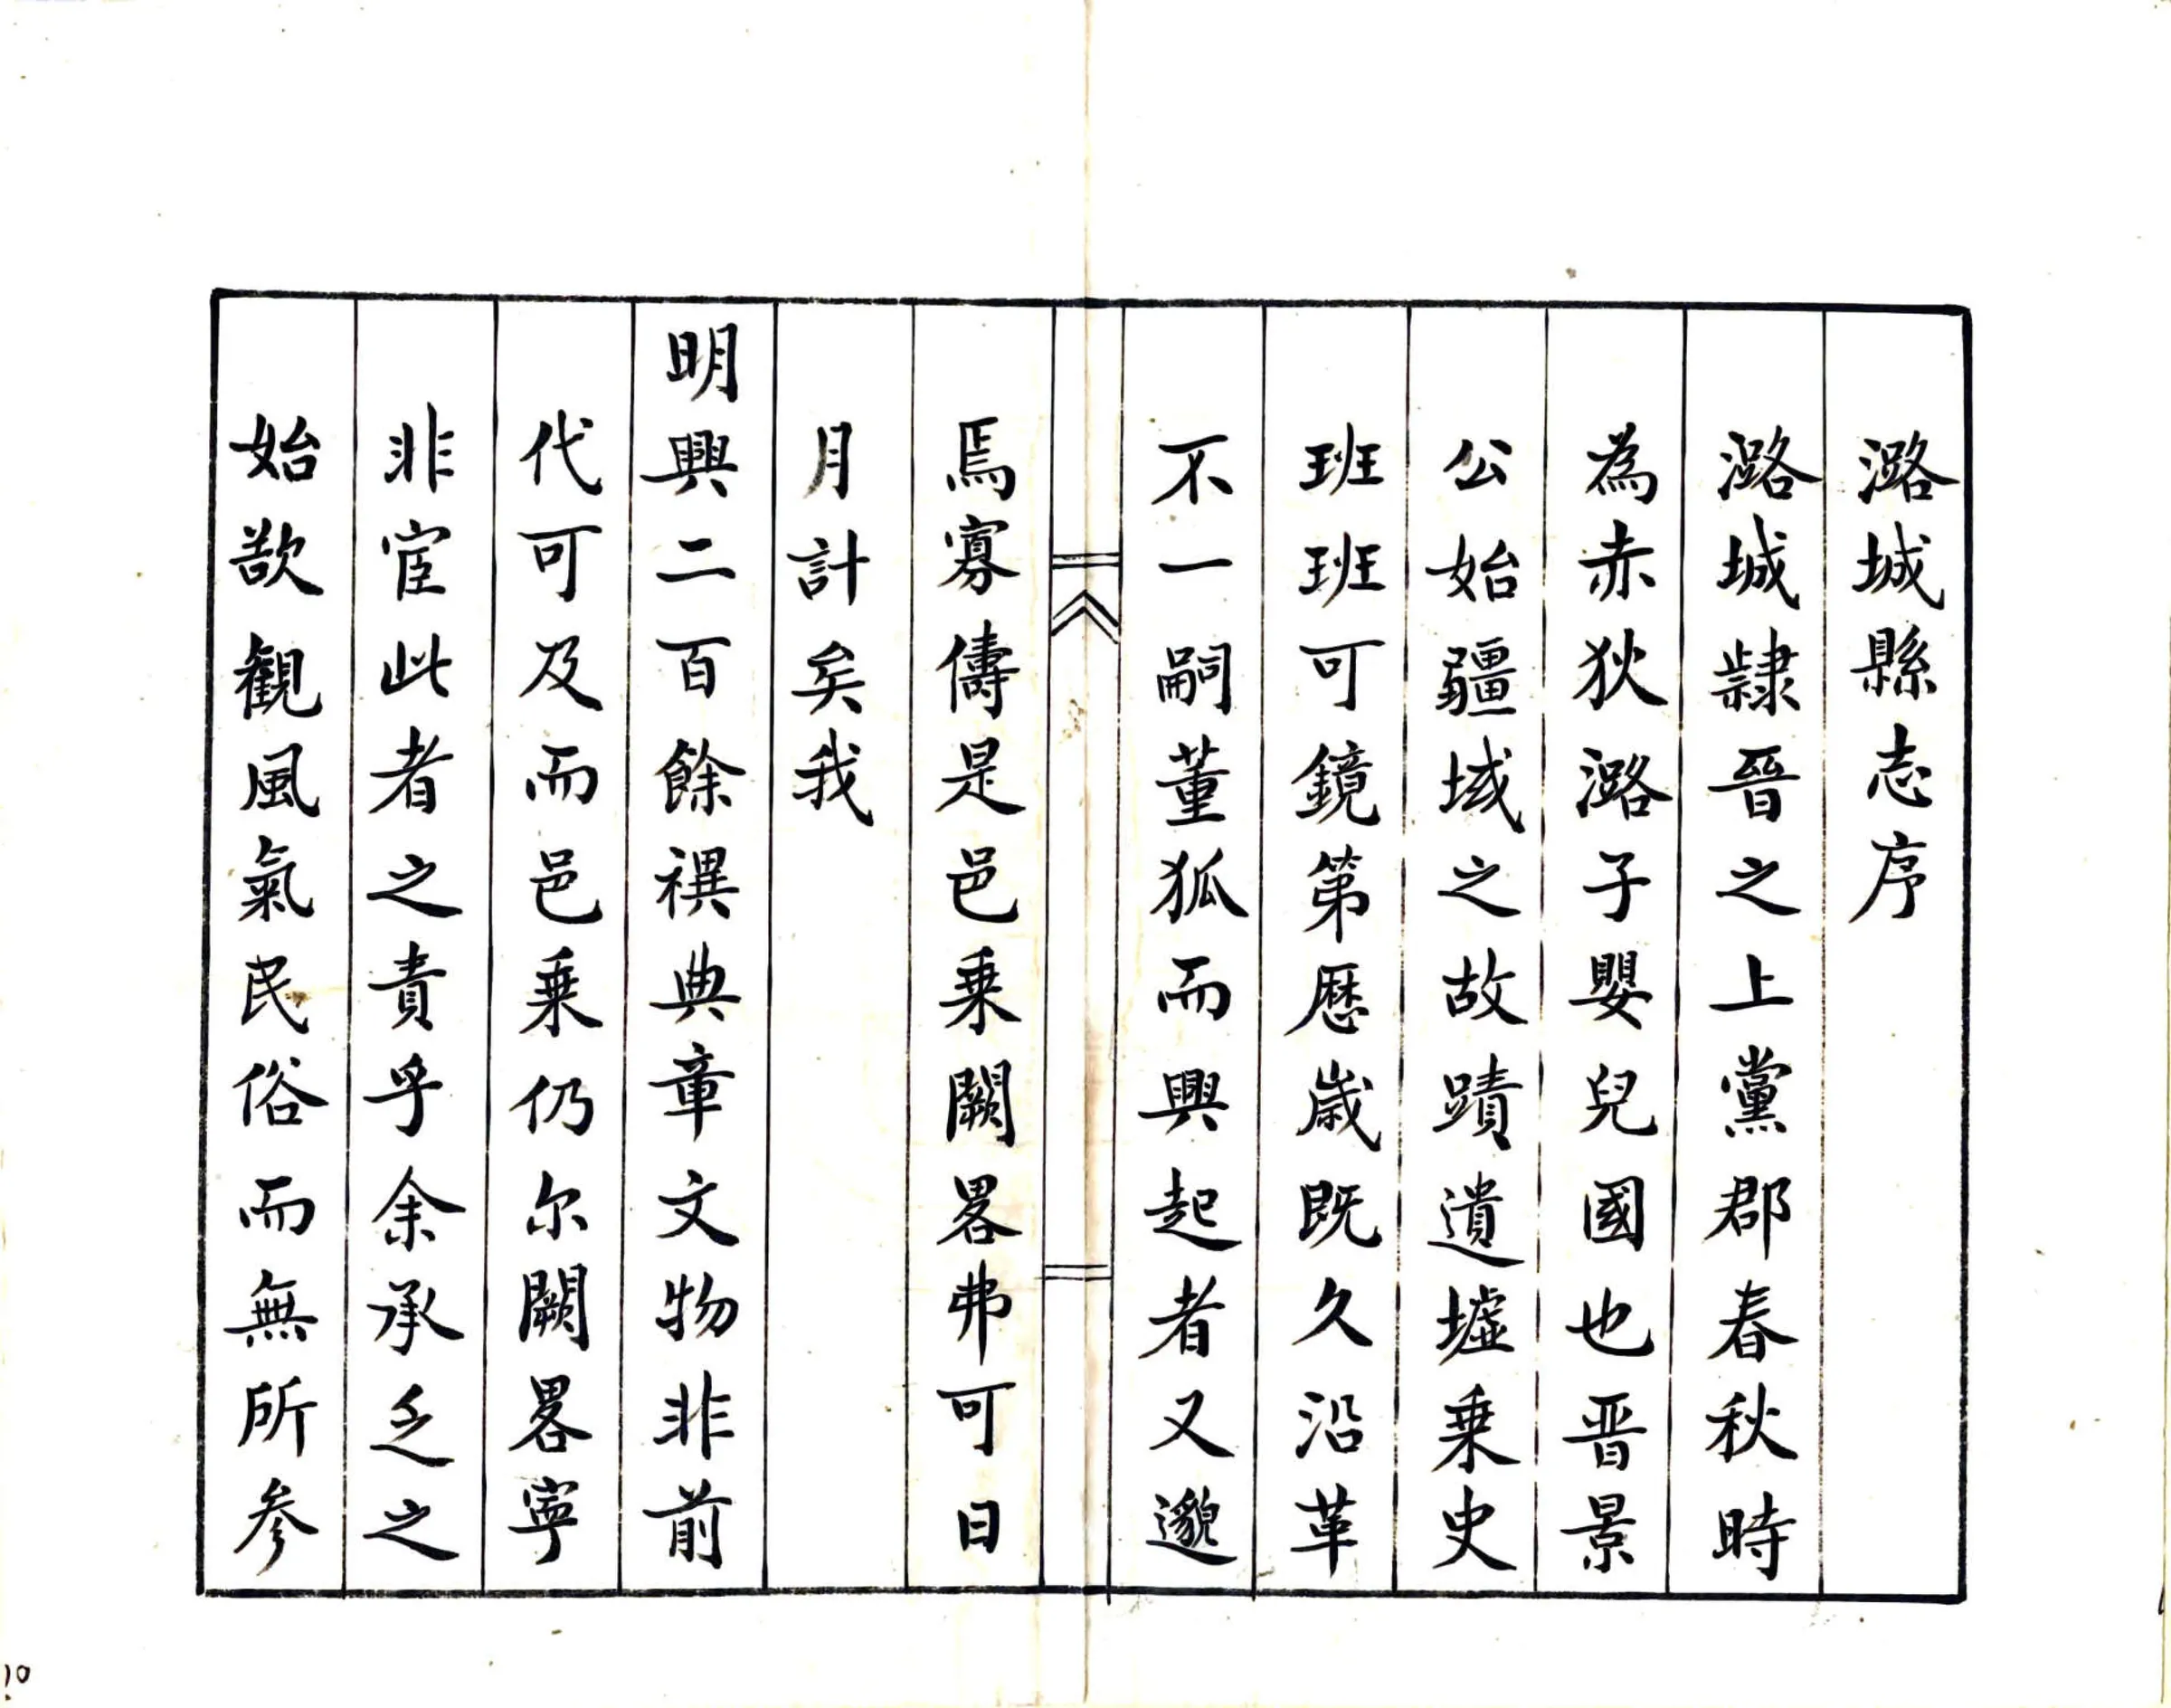 潞城縣志序
潞城隸晉之上黨郡春秋時
為赤狄潞子嬰兒國也晋景
公始疆域之故蹟遺墟乗史
班班可鏡第歴歲既久沿革
不一嗣董狐而興起者又邈
焉寡儔是邑乗闕畧弗可日
月計矣我
明興二百餘禩典章文物非前
代可及而邑乗仍尔闕畧寧
非宦此者之責乎余承乏之
始欲観風氣民俗而無所参
10